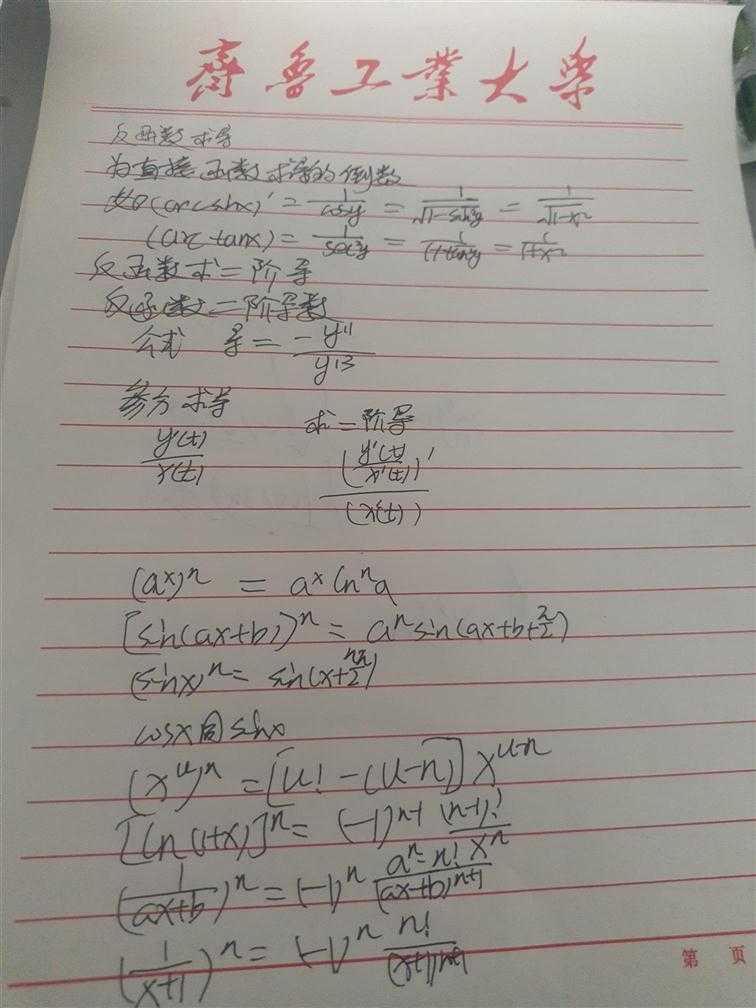 齊魯工業大學
反函数求导
为直接函数求导的倒数
如(arcsinx)' = 1/cosy = 1/√(1-sin²y) = 1/√(1-x²)
(arctanx) = 1/sec²y = 1/(1+tan²y) = 1/(1+x²)
反函数求二阶导
反函数二阶导数
公式 导 = -y''/y'3
参方求导 求二阶导
y'(t)/x'(t) (y'(t)/x'(t))'/(x'(t))
(aˣ)ⁿ = aˣlnⁿa
[sin(ax+b)]ⁿ = aⁿsin(ax+b+nπ/2)
(sinx)ⁿ = sin(x+nπ/2)
cosx同sinx
(xᵘ)ⁿ = [u!-(u-n)]xᵘ⁻ⁿ
[ln(1+x)]ⁿ = (-1)ⁿ⁻¹ (n-1)!/xⁿ
(1/(ax+b))ⁿ = (-1)ⁿ aⁿ n!/(ax+b)ⁿ⁺¹
(1/(x+1))ⁿ = (-1)ⁿ n!/(x+1)ⁿ⁺¹
第 页